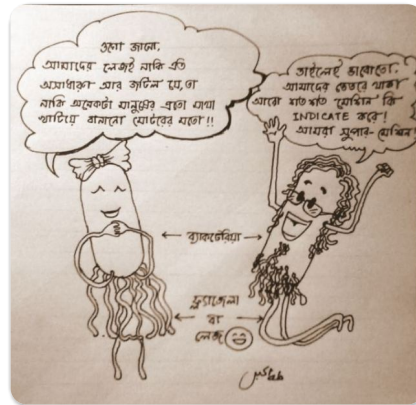 ওগো জানো,
আমাদের লেজই নাকি এত
অসাধারণ আর জটিল যে, তা
নাকি অনেকটা মানুষের এতো মাথা
খাটিয়ে বানানো মোটরের মতো!!
তাইলেই ভাবোতো,
আমাদের ভেতরে থাকা
আরো শত শত মেশিন কি
INDICATE করে!
আমরা সুপার-মেশিন!
← ব্যাকটেরিয়া →
ফ্ল্যাজেলা
← বা →
লেজ